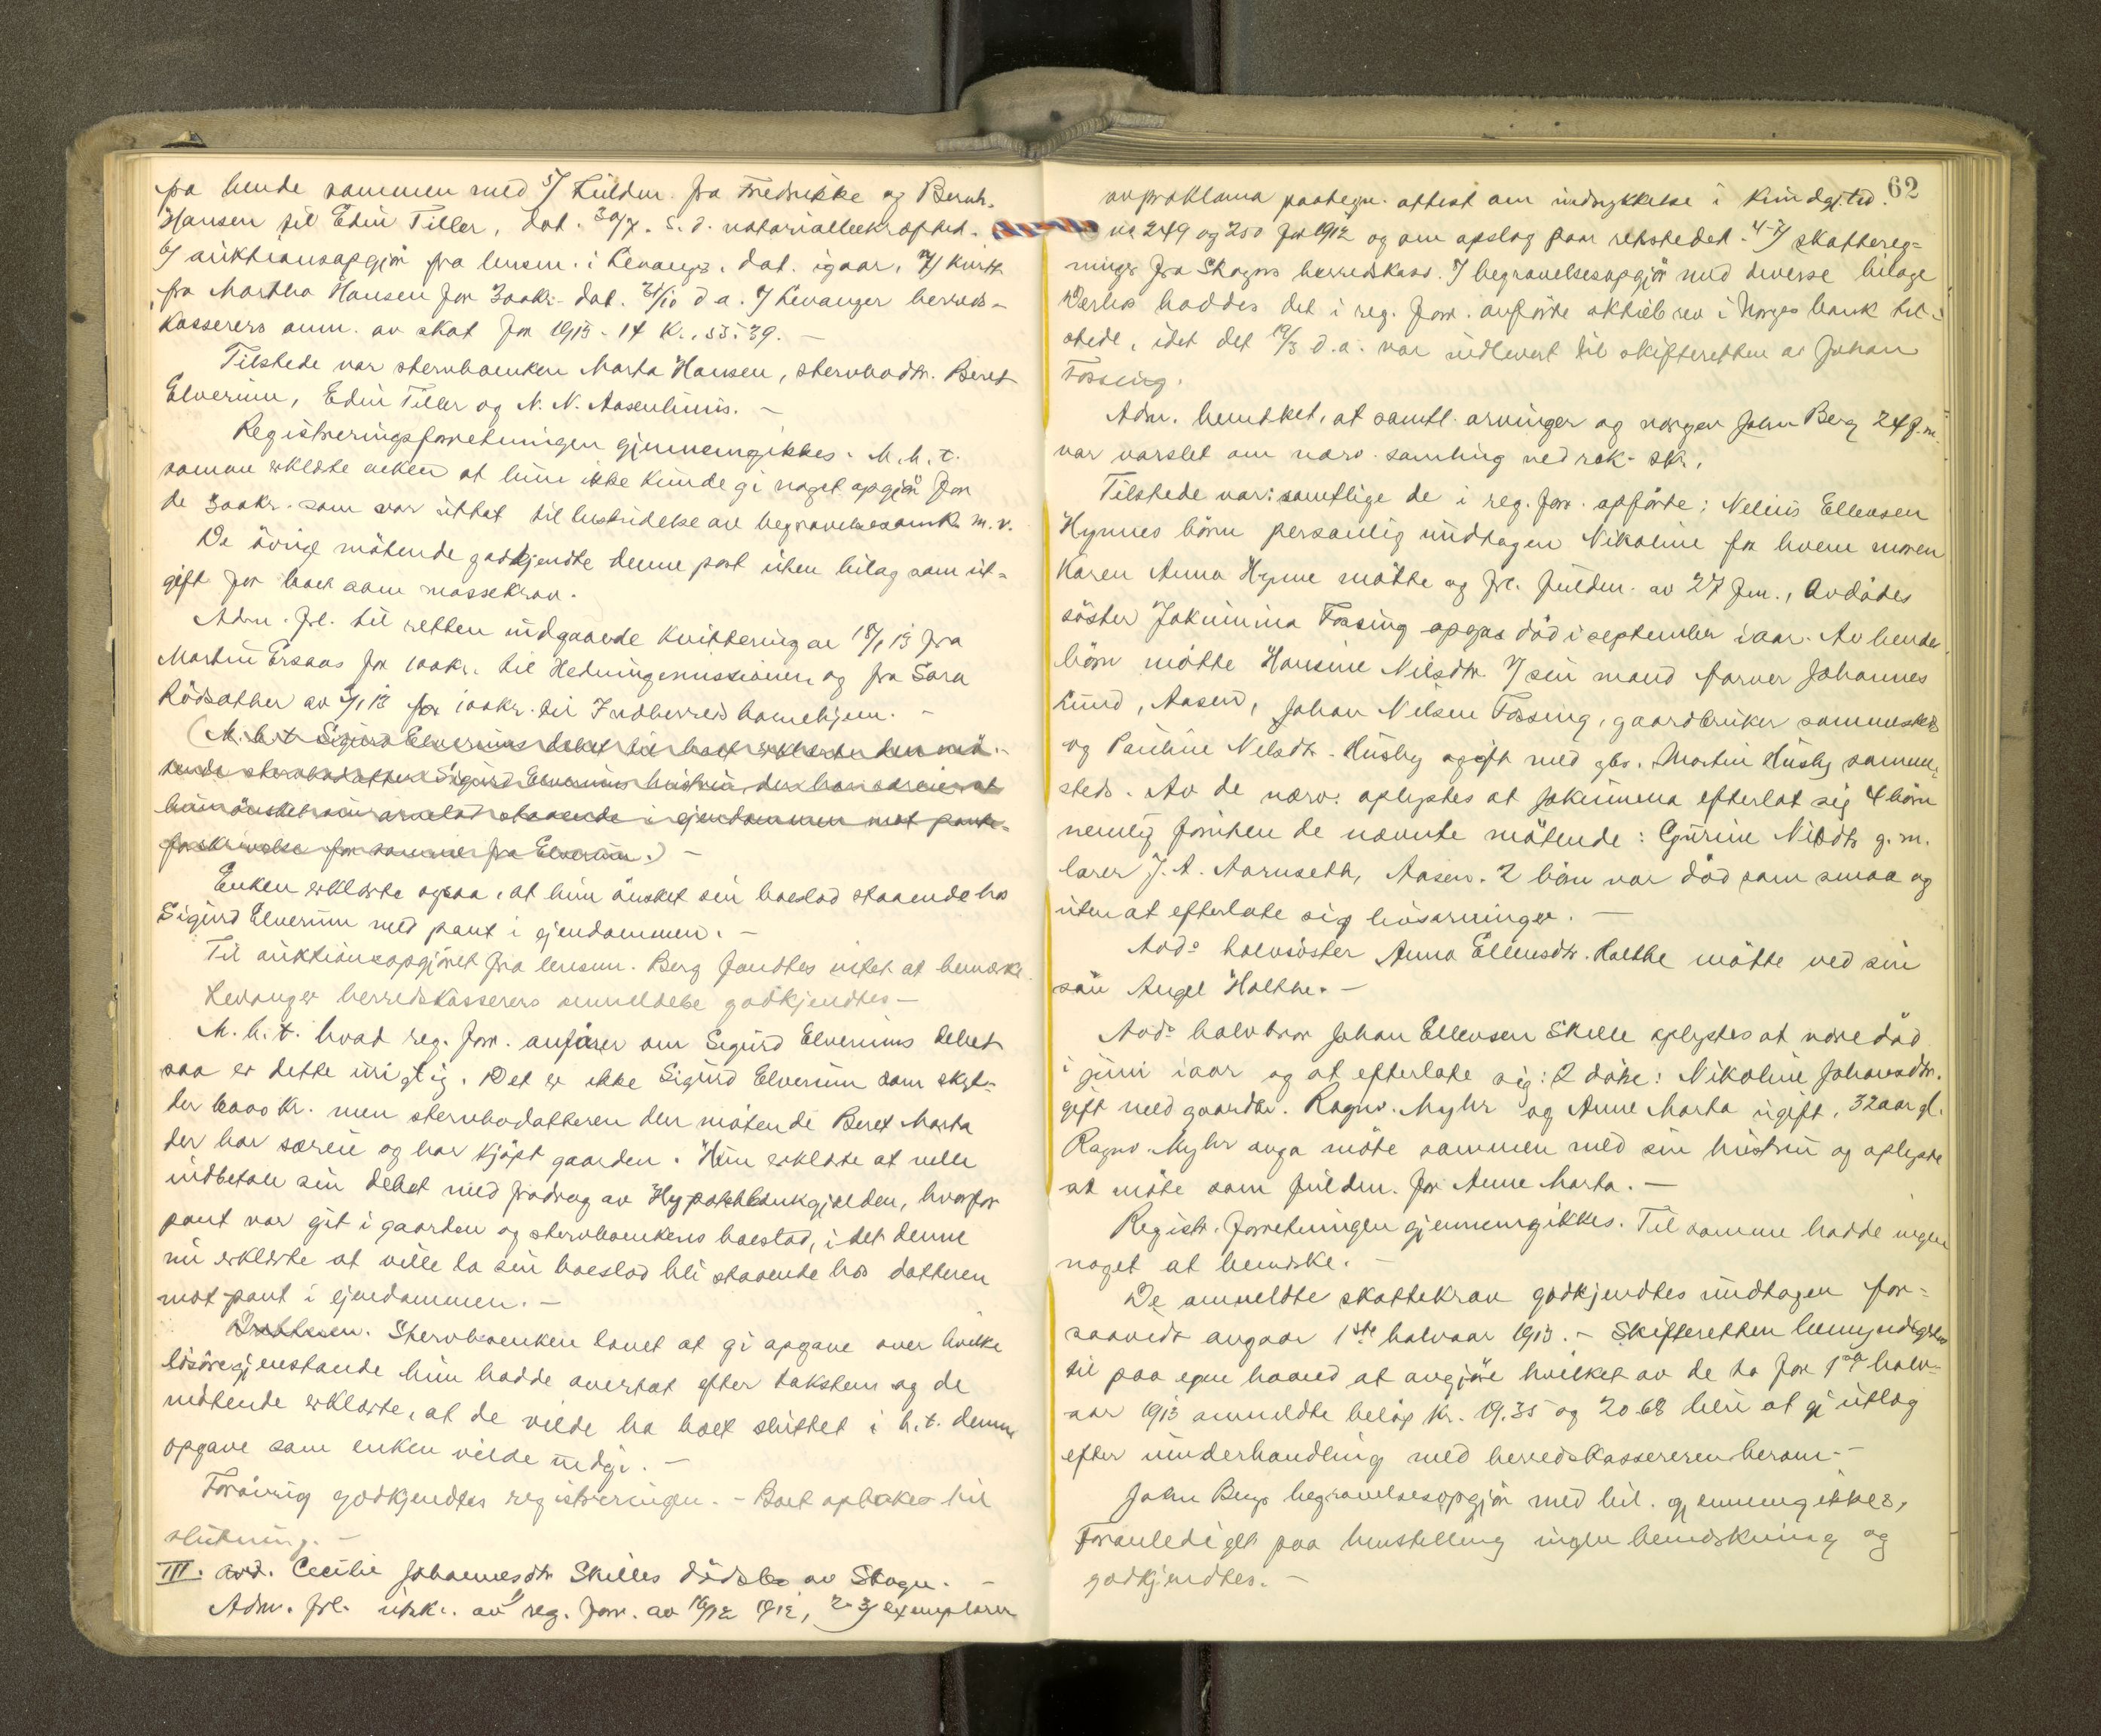 fra hende sammen med 5/ Fuldm. fra Fredrikke og Bernh.
Hansen til Edin Tiller, dat. 30/7. s. d. notarialbekræftet.
6/ auktionsopgjör fra lensm. i Levanger, dat. igaar, 7/ kvitt.
fra Martha Hansen for 300kr. dat. 21/10 d. a. Levanger herreds-
kasserers anm. av skat for 1913-14 K. 55.39.
Tilstede var stervboenken Marta Hansen, stervbodtr. Beret
Elverum, Edin Tiller og N. N. Aasenhuus. -
Registreringsforretningen gjennemgikkes. M. h. t.
samme erklærte enken at hun ikke kunde gi noget opgjör for
de 300kr. som var uttat til bestridelse av begravelsesomk. m. v.
De övrige mötende godkjendte denne post uten bilag som ut-
gift for boet som massekrav.
Adm. frl. til retten indgaaende kvittering av 18/1 13 fra
Martin Ersaas for 100kr. til Hedningemissionen og fra Sara
Rödsæther av 13 for 100kr. til Indherreds barnehjem. -
(M. h. t. Sigurd Elverums debet til boet erklærte den mö-
tende stervbodatter Sigurd Elverums hustru, der har særeie at
hun önsket sin arvelod staaende i ejendommen mot pante-
forskrivelse for samme fra Elverum.) -
Enken erklærte ogsaa, at hun önsket sin boeslod staaende hos
Sigurd Elverum med pant i ejendommen. -
Til auktionsopgjöret fra lensm. Berg fandtes intet at bemærke.
Levanger herredskasserers anmeldelse godkjendtes -
M. h. t. hvad reg. forr. anförer om Sigurd Elverums debet
saa er dette urigtig. Det er ikke Sigurd Elverum som skyl-
der 6000 kr. men stervbodatteren den mötende Beret Marta
der har særeie og har kjöpt gaarden. Hun erklærte at ville
indbetale sin debet med fradrag av Hypothekbankgjælden, hvorfor
pant var git i gaarden og stervboenkens boeslod, idet denne
nu erklærte at ville la sin boeslod bli staaende hos datteren
mot pant i ejendommen. -
Stervboenken lovet at gi opgave over hvilke
lösöregjenstande hun hadde overtat efter taksten og de
mötende erklærte, at de vilde ha boet sluttet i h. t. denne
opgave som enken vilde indgi. -
Forövrig godkjendtes registreringen. - Boet optakes til
slutning. -
III. avd. Cecilie Johannesdtr Skilles dödsbo av Skogn. -
Adm. frl. utskr. av 1/ reg. forr. av 16/12 1912, 2-3/ exemplarer
62
av proklama paategn. attest om indrykkelse i Kundgj.tid.
nr 249 og 250 for 1912 og om opslag paa retstedet. 4-/ skattereg-
ninger fra Skogns herredskass. / begravelsesopgjör med diverse bilage
Derhos haddes det i reg. forr. anförte aktiebrev i Norges bank til-
stede, idet det 19/3 d. a. var indlevert til skifteretten av Johan
Fossing.
Adm. bemerket, at samtl. arvinger og vergen John Berg 24 f. m.
var varslet om nærv. samling ved rek. skr.
Tilstede var: samtlige de i reg. forr. opförte: Nelius Ellevsen
Hynnes börn personlig undtagen Nikoline for hvem moren
Karen Anna Hynne mötte og frl. fuldm. av 27 f.m., Avdödes
söster Jokumina Fossing opgas död i september iaar. Av hendes
börn mötte Hansine Nilsdtr. v/ sin mand farver Johannes
Lund, Aasen, Johan Nilsen Fossing, gaardbruker sammesteds
og Pauline Nelsdtr. Husby og gift med gbr. Martin Husby sammen-
steds. Av de nærv. oplystes at Jokumina efterlot sig 4 börn
nemlig foruten de nævnte mötende: Gurine Nilsdtr g. m.
lærer J. A. Aarnseth, Aasen. 2 börn var död som smaa og
uten at efterlate sig livsarvinger. -
Avds halvsöster Anna Ellevsdtr. Holthe mötte ved sin
sön Angel Holthe. -
Avds halvbror Johan Ellevsen Skille oplystes at være död
i juni iaar og at efterlate sig: 2 dötre: Nikoline Johansdtr.
gift med gaardbr. Ragnv. Myhr og Anne Marta ugift, 32 aar gl.
Ragnv Myhr anga möte sammen med sin hustru og oplyste
at möte som fuldm. for Anne Marta. -
Registr. forretningen gjennemgikkes. Til samme hadde ingen
noget at bemerke. -
De anmeldte skattekrav godkjendtes undtagen for-
saavidt angaar 1ste halvaar 1913. - Skifteretten bemyndigedes
til paa egen haand at avgjöre hvilket av de to for 1ste halv-
aar 1913 anmeldte belöp kr. 19.35 og 20.68 blev at gi utlog
efter underhandling med herredskassereren herom. -
John Bergs begravelsesopgjör med bil. gjennemgikkes,
foranlediget paa henstilling ingen bemerkning og
godkjendtes. -